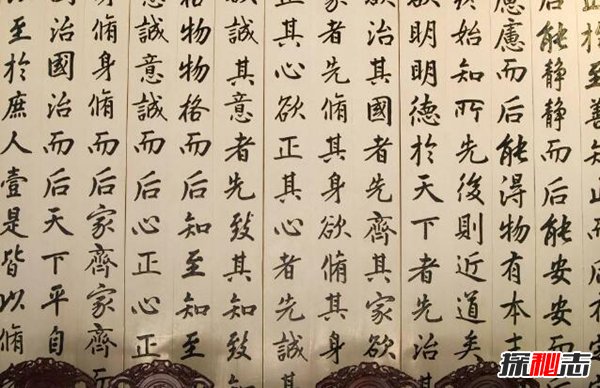 於至善知止而后
后能静静而后能安安而
慮而后能得物有本
終始知所先後則近道矣
欲明明德於天下者先治其
欲治其國者先齊其家欲
家者先脩其身欲脩其身
正其心欲正其心者先誠其
誠其意者先致其知致
格物物格而后知至知至
意誠意誠而后心正心正
身脩身脩而后家齊家齊而
治國治而后天下平自
至於庶人壹是皆以脩
探秘志